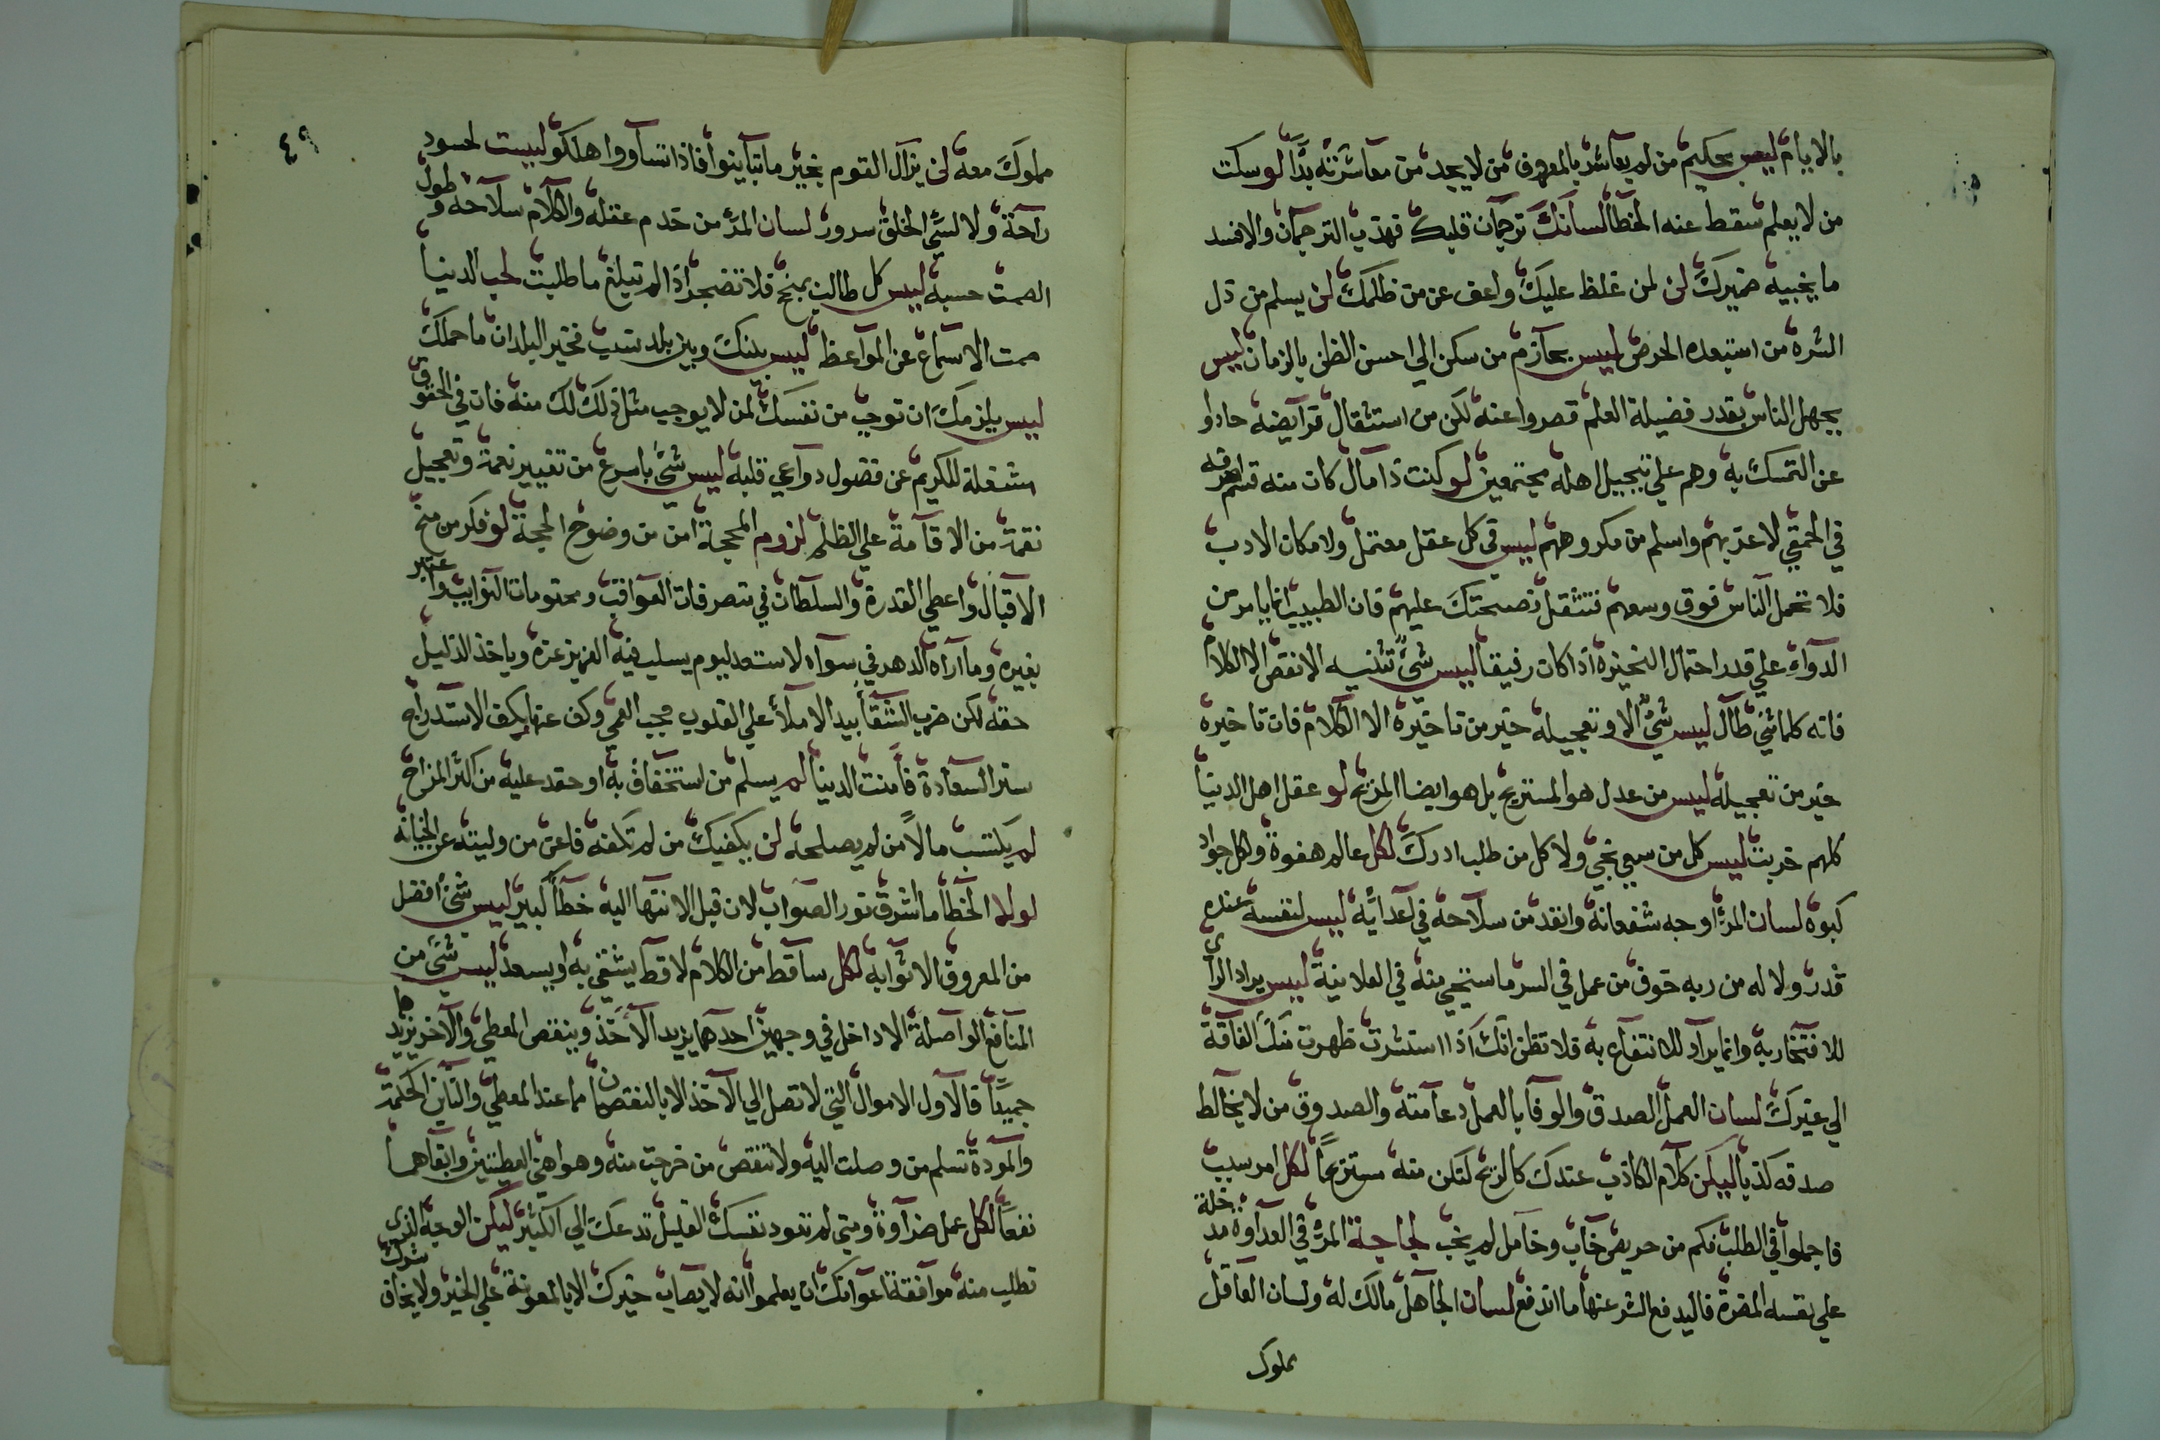 بالايام ليس بحكيم من لم يعاشر بالمعروف من لا يجد من معاشرته بدا لو سكت
من لا يعلم سقط عنه الخطأ لسانك ترجمان قلبك فهذب الترجمان والا فسد
ما يخبيه ضميرك لن لمن غلظ عليك واعف عن من ظلمك لن يسلم من ذل
الشره من استبعده الحرص ليس بحازم من سكن الي احسن الظن بالزمان ليس
بجهل الناس بقدر فضيلة العلم قصروا عنه لكن من استثقال فرايضه حادوا
عن التمسك به وهم علي تبجيل اهله مجتمعين لو كنت ذا مال كان منه قسم افرقه
في الحمقي لا عذبهم واسلم من مكروههم ليس في كل عقل معتمل ولا مكان الادب
فلا تحمل الناس فوق وسعهم فتثقل نصيحتك عليهم فان الطبيب انما يامر من
الدواء علي قدر احتمال النخيزه اذا كان رفيقا ليس شئ تثنيه الا نقص الا الكلام
فانه كلما ثني طال ليس شئ الا وتعجيله خير من تاخيره الا الكلام فان تاخيره
خير من تعجيله ليس من عدل هو المستريح بل هو ايضا المريح لو عقل اهل الدنيا
كلهم خربت ليس كل من سعي نجي ولا كل من طلب ادرك لكل عالم هفوة ولكل جواد
كبوه لسان المرء اوجه شفعانه وانفذ من سلاحه في اعدايه ليس لنفسه عنده
قدر ولا له من ربه خوف من عمل في السر ما يستحي منه في العلانية ليس يراد الراي
للافتخار به وانما يراد للانتفاع به فلا تظن انك اذا استشرت ظهرت منك الفاقة
الي غيرك لسان العمل الصدق والوفا بالعمل دعامته والصدوق من لا يخالط
صدقه كذبا ليكن كلام الكاذب عندك كالريح لتكن منه مستريحا لكل امر سبب
فاجملوا في الطلب فكم من حريص خاب وخامل لم يخب لجاجة المرء في العداوة مدخلة
علي نفسه المضرة فاليدفع الشر عنها ما اندفع لسان الجاهل مالك له ولسان العاقل
مملوك
٤٩
مملوك معه لن يزال القوم بخير ما تباينوا فاذا تساووا هلكو ليست لحسود
راحة ولا لسئ الخلق سرور لسان المرء من خدم عقله والكلام سلاحه وطول
الصمت حسبه ليس كل طالب بمنجح فلا تضجر اذا لم تبلغ ما طلبت لحب الدنيا
صمت الاسماع عن المواعظ ليس بينك وبين بلد نسب فخير البلدان ما حملك
ليس يلزمك ان توجب من نفسك لمن لا يوجب مثل ذلك لك منه فان في الحقوق
مشغلة للكريم عن فضول دواعي قلبه ليس شئ باسرع من تغيير نعمة وتعجيل
نقمة من الاقامة علي الظلم لزوم المحجة امن من وضوح الحجة لو فكر من منح
الاقبال واعطي القدرة والسلطان في تصرفات العواقب ومحتومات النوايب واعتبر
بغيره وما اراه الدهر في سواه لاستعد ليوم يسلب فيه العزيز عزه وياخذ الذليل
حقه لكن ضرب الشقا بيد الاملا علي القلوب حجب العمي وكف عنها بكف الاستدراج
ستر السعادة فامنت الدنيا لم يسلم من استخفاف به او حقد عليه من كثر المزاح
لم يكتسب مالا من لم يصلحه لن يكفيك من لم تكفه فاعن من وليته عن الخيانه
لولا الخطأ ما اشرق نور الصواب لان قبل الانتها اليه خطأ كبير ليس شئ افضل
من المعروف الا ثوابه لكل ساقط من الكلام لاقط يشقي به او يسعد ليس شئ من
المنافع الواصلة الا داخل في وجهين احدهما يزيد الآخذ وينقص المعطي والاخر يزيدهما
جميعا فالاول الاموال التي لا تصل الي الآخذ الا بالنقصان مما عند المعطي والثاني الحكمة
والمودة تسلم من وصلت اليه ولا تنقص من خرجت منه وهو اهني العطيتين وابقاهما
نفعا لكل عمل ضراوة ومتي لم تعود نفسك القليل تدعك الي الكثير ليكن الوجه الذي
تطلب منه موافقة اعوانك ان يعلموا انه لا يصاب خيرك الا بالمعونة علي الخير ولا يخاف شرك